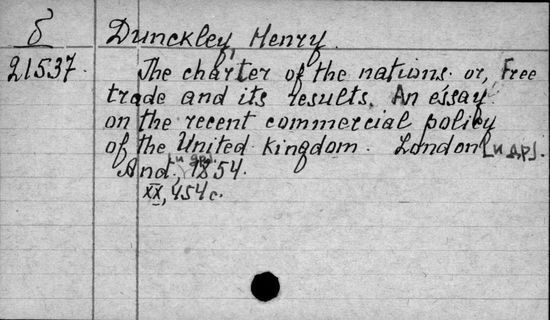 б
21537.
Dunckley, Henry.
The charter of the nations. or, Free
trade and its results. An essay
on the recent commercial policy
of the United Kingdom. London [и др].
And. [и др]., 1854.
XX, 454 с.